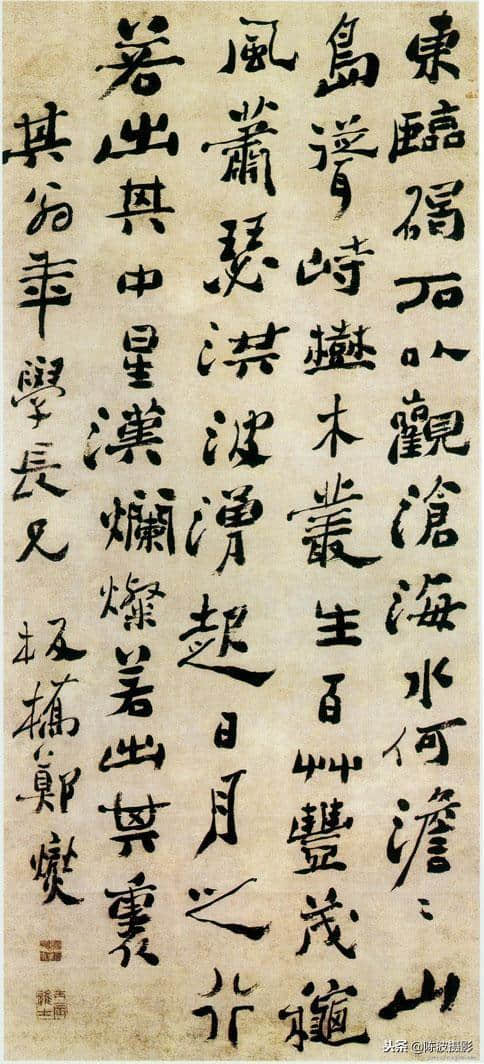 東臨碣石以觀滄海水何澹〻山
島聳峙樹木叢生百艸豐茂穐
風蕭瑟洪波湧起日月之行
若出其中星漢爛燦若出其裏
其翁年學長兄 板橋鄭燮
头条 @陈波摄影